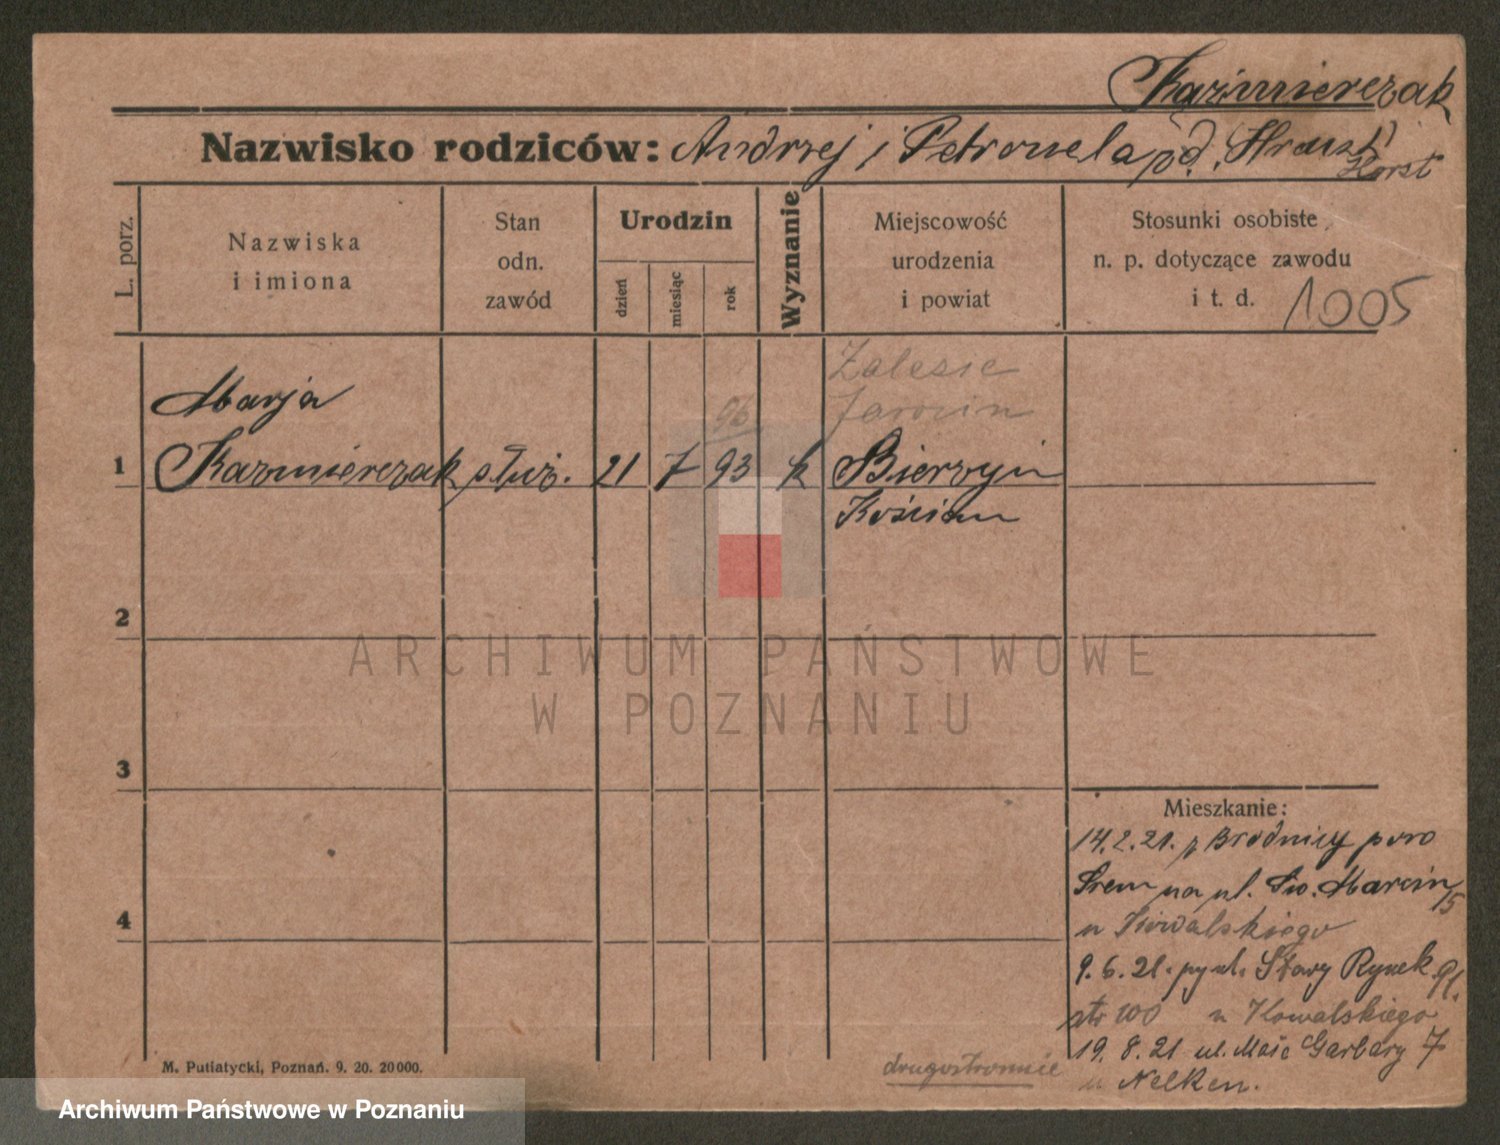 Kaźmierczak
Nazwisko rodziców: Andrzej i Petronela pd.
Horst
L. porz.
Nazwiska
i imiona
Stan
odn.
zawód
Urodzin
dzień
miesiąc
rok
Wyznanie
Miejscowość
urodzenia
i powiat
Stosunki osobiste
n. p. dotyczące zawodu
i t. d.
1005
Zalesie
Jarocin
96
Marja
1 Kazmierczak służ. 21 7 93 k
Kościan
2
3
4
Mieszkanie:
14.2.21. z Brodnicy pow
Śrem na ul. Św. Marcin 15
u Kowalskiego
9.6.21. ul. Stary Rynek 91.
100 u Kowalskiego
19.8.21 ul. Małe Garbary 7
u Nelken.
drugostronnie
M. Putiatycki, Poznań. 9. 20. 20000.
ARCHIWUM PAŃSTWOWE
W POZNANIU
Archiwum Państwowe w Poznaniu